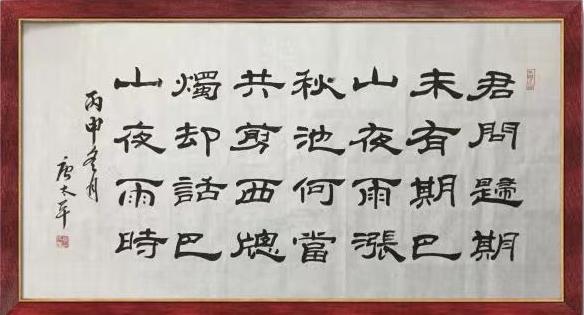 君問歸期
未有期巴
山夜雨漲
秋池何當
共剪西牕
燭却話巴
山夜雨時
丙申冬月
唐太平